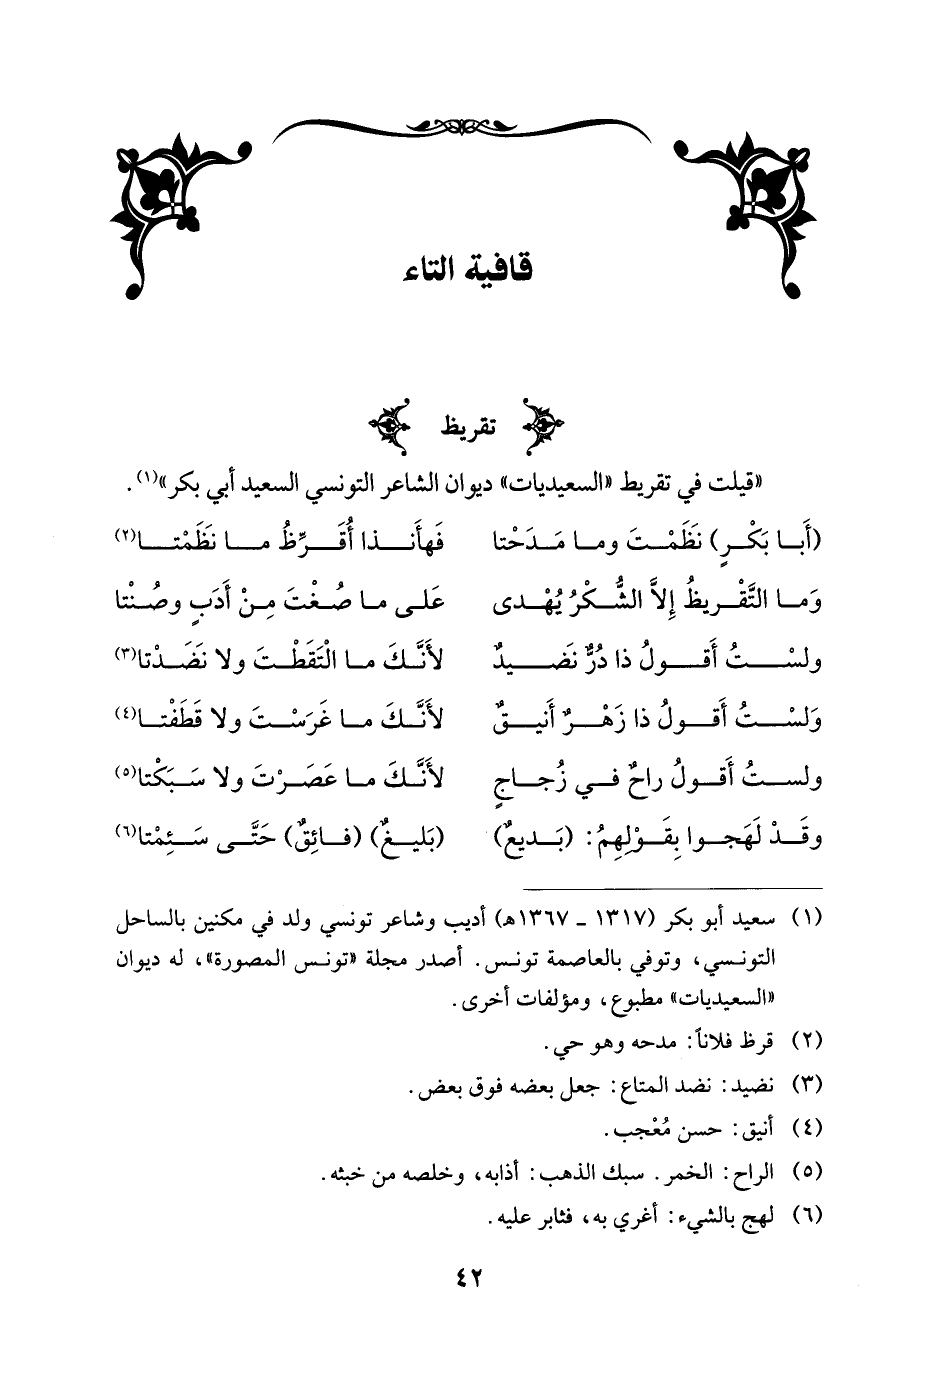 قافية التاء
تقريظ
«قيلت في تقريط «السعيديات» ديوان الشاعر التونسي السعيد أبي بكر»(١).
(أَبا بَكْرٍ) نَظَمْتَ وما مَدَحْتا فَهأَنذا أُقَرِّظُ ما نَظَمْتا(٢)
وَما التَّقْريظُ إِلاَّ الشُّكْرُ يُهْدى عَلى ما صُغْتَ مِنْ أَدَبٍ وصُنْتا
ولسْتُ أَقولُ ذا دُرٌّ نَضيدٌ لأَنَّكَ ما الْتَقَطْتَ ولا نَضَدْتا(٣)
وَلسْتُ أَقولُ ذا زَهْرٌ أَنيقٌ لأَنَّكَ ما غَرَسْتَ ولا قَطَفْتا(٤)
ولستُ أَقولُ راحٌ في زُجاجٍ لأَنَّكَ ما عَصَرْتَ ولا سَبَكْتا(٥)
وقَدْ لَهَجوا بِقَوْلِهِمُ: (بَديعٌ) (بَليغٌ) (فائِقٌ) حَتَّى سَئِمْتا(٦)
(١) سعيد أبو بكر (١٣١٧ ـ ١٣٦٧هـ) أديب وشاعر تونسي ولد في مكنين بالساحل
التونسي، وتوفي بالعاصمة تونس. أصدر مجلة «تونس المصورة»، له ديوان
«السعيديات» مطبوع، ومؤلفات أخرى.
(٢) قرظ فلاناً: مدحه وهو حي.
(٣) نضيد: نضد المتاع: جعل بعضه فوق بعض.
(٤) أنيق: حسن مُعْجب.
(٥) الراح: الخمر. سبك الذهب: أذابه، وخلصه من خبثه.
(٦) لهج بالشيء: أغري به، فثابر عليه.
٤٢